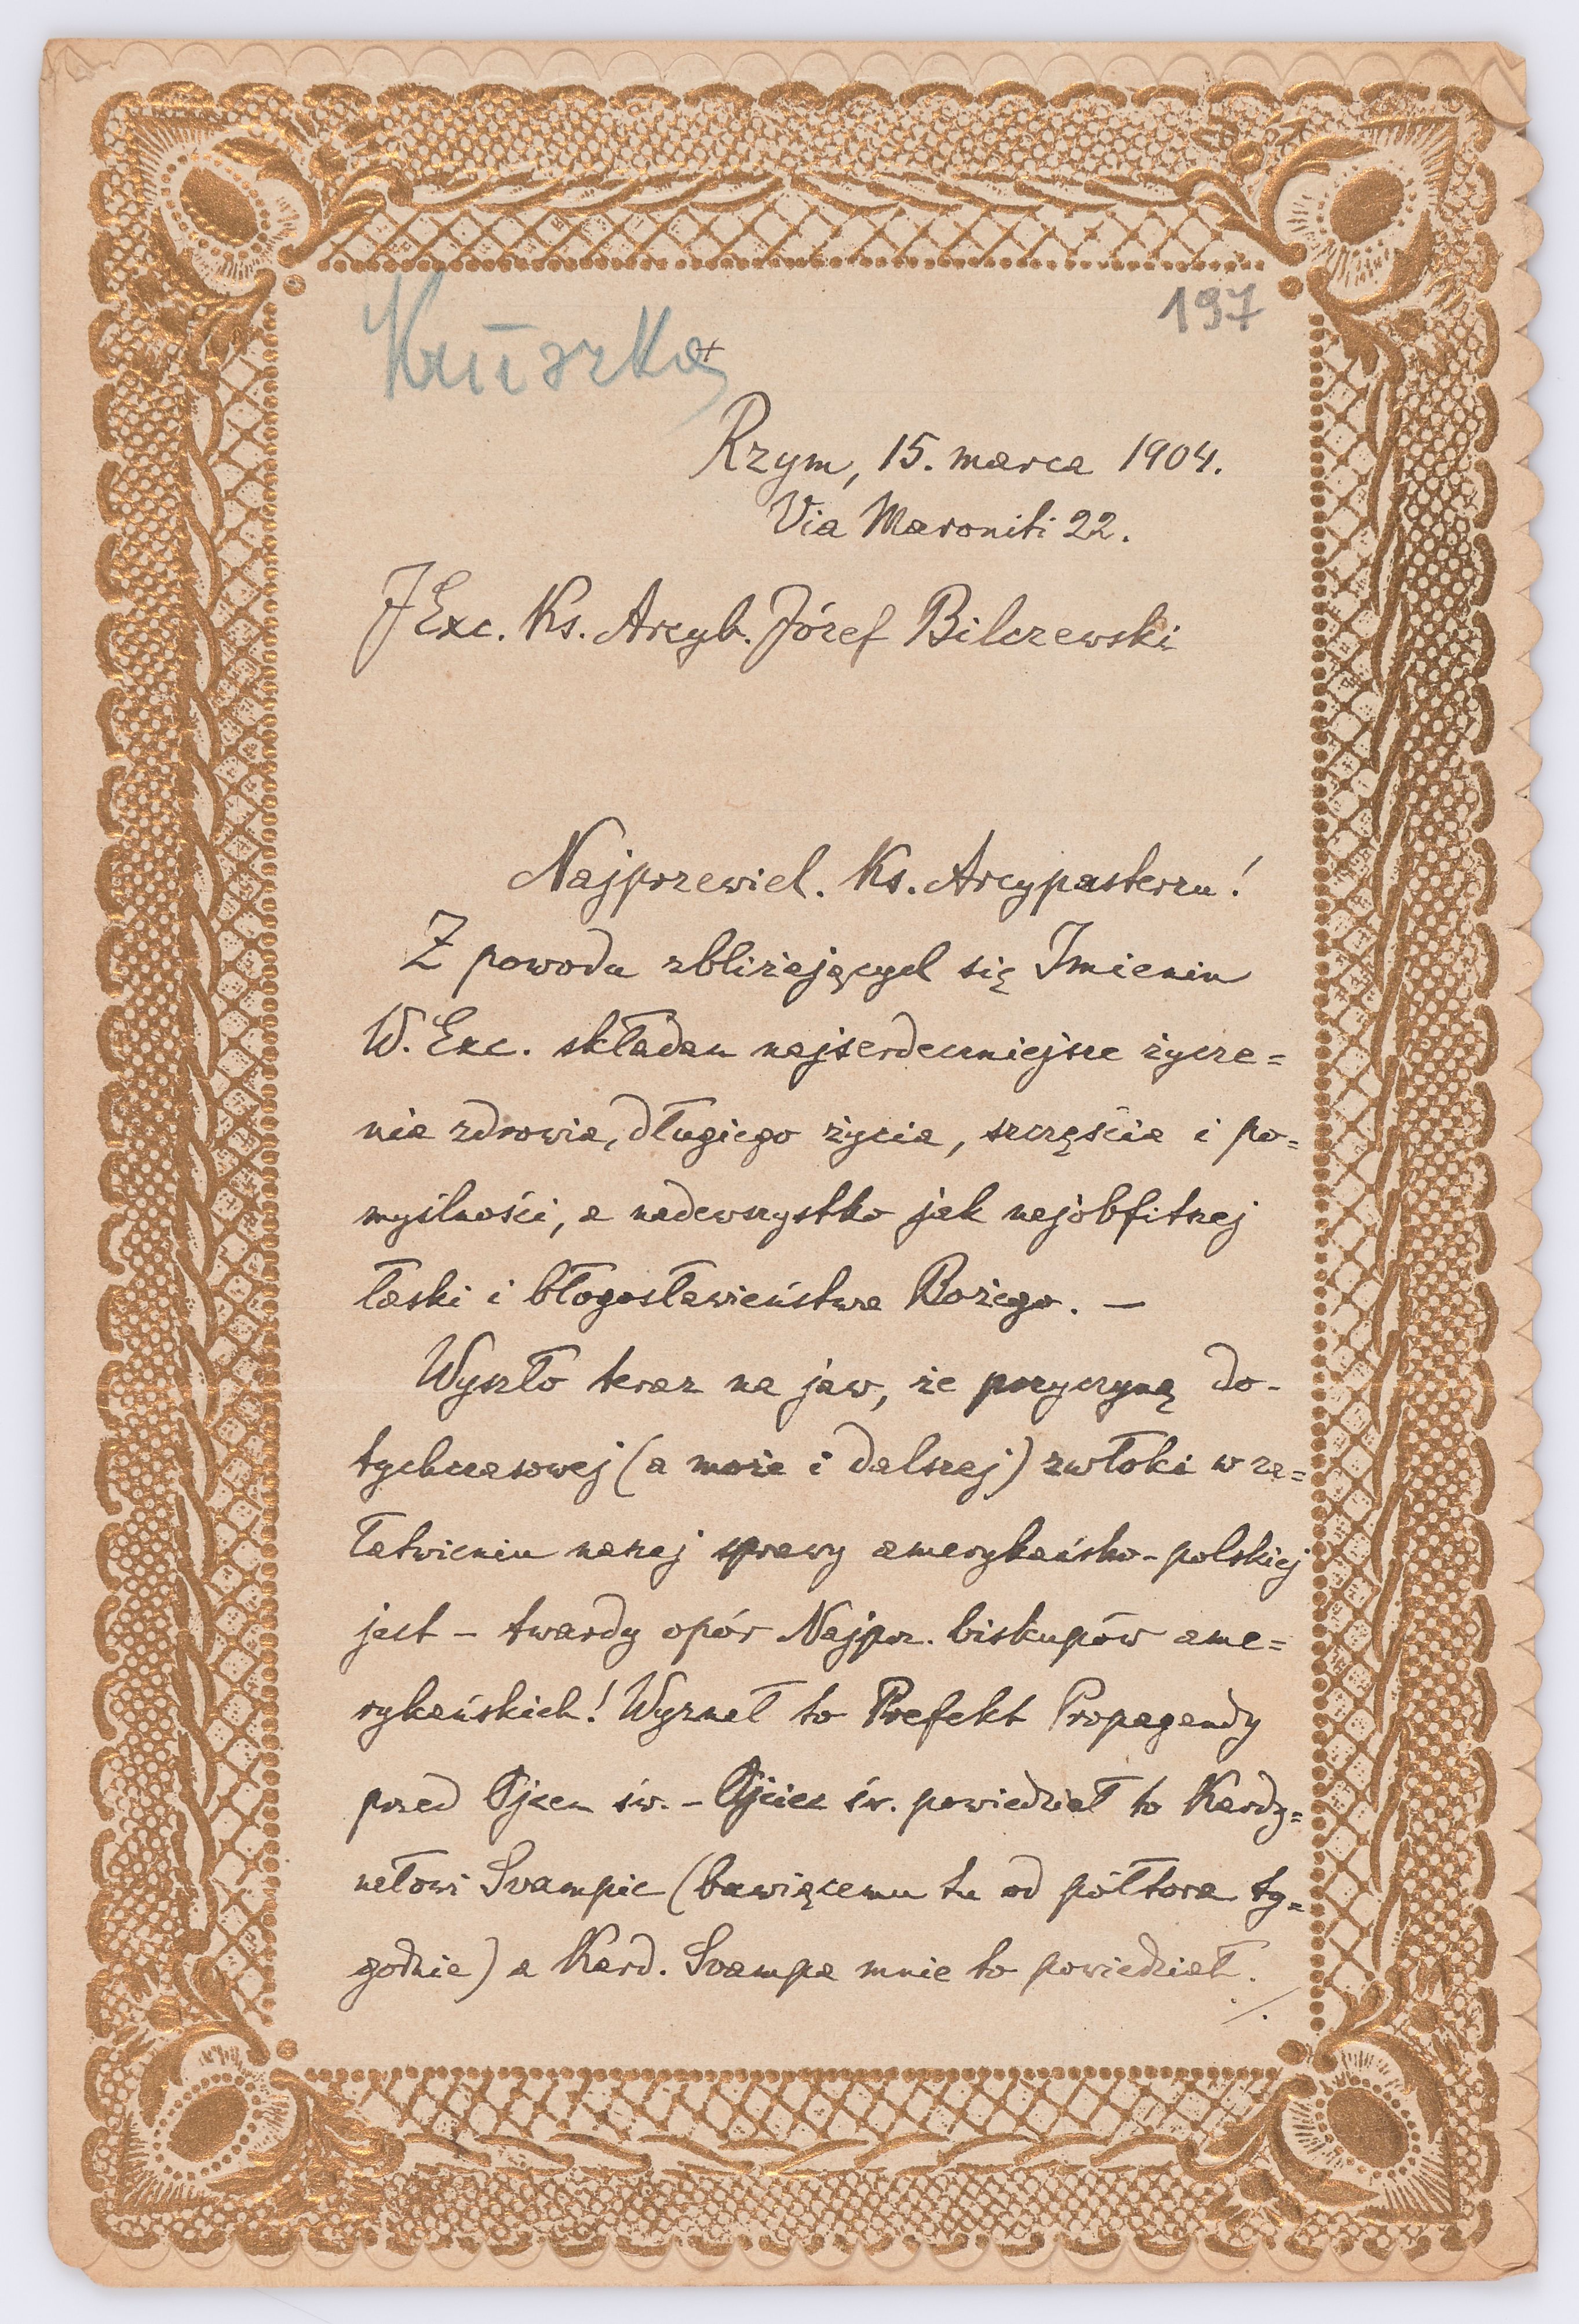 197
Kruszka
+
Rzym, 15. marca 1904.
Via Maroniti 22.
JExc. Ks. Arcyb. Józef Bilczewski
Najprzewiel. Ks. Arcypasterzu!
Z powodu zbliżających się Imienin
W. Exc. składam najserdeczniejsze życze=
nia zdrowia, długiego życia, szczęścia i po=
myślności, a nadewszystko jak najobfitszej
łaski i błogosławieństwa Bożego. —
Wyszło teraz na jaw, że przyczyną do-
tychczasowej (a może i dalszej) zwłoki w za=
łatwieniu naszej sprawy amerykańsko-polskiej
jest – twardy opór Najprz. biskupów ame=
rykańskich! Wyznał to Prefekt Propagandy
przed Ojcem św. – Ojciec św. powiedział to Kardy=
nałowi Svampie (bawiącemu tu od półtora ty=
godnia) a Kard. Svampa mnie to powiedział.
./.